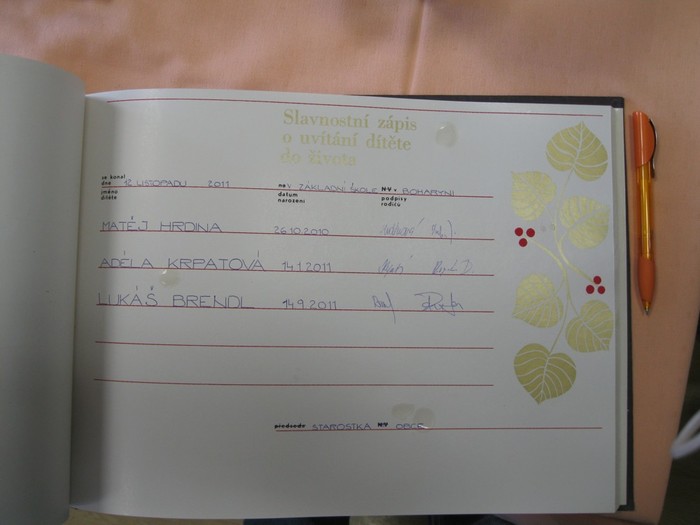 Slavnostní zápis
o uvítání dítěte
do života
se konal
dne 12. LISTOPADU 2011 na V ZÁKLADNÍ ŠKOLE NV v BOHARYNI
jméno dítěte datum narození podpisy rodičů
MATĚJ HRDINA 26.10.2010
ADÉLA KRPATOVÁ 14.1.2011
LUKÁŠ BRENDL 14.9.2011
předseda STAROSTKA NV OBCE